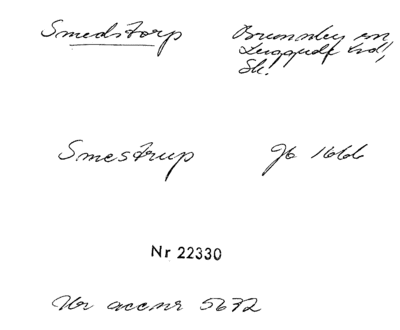 Smedstorp
Brunnby sn
Luggude hd,
Sk.
Smestrup
Jb 1666
Nr 22330
Ur acc nr 5672